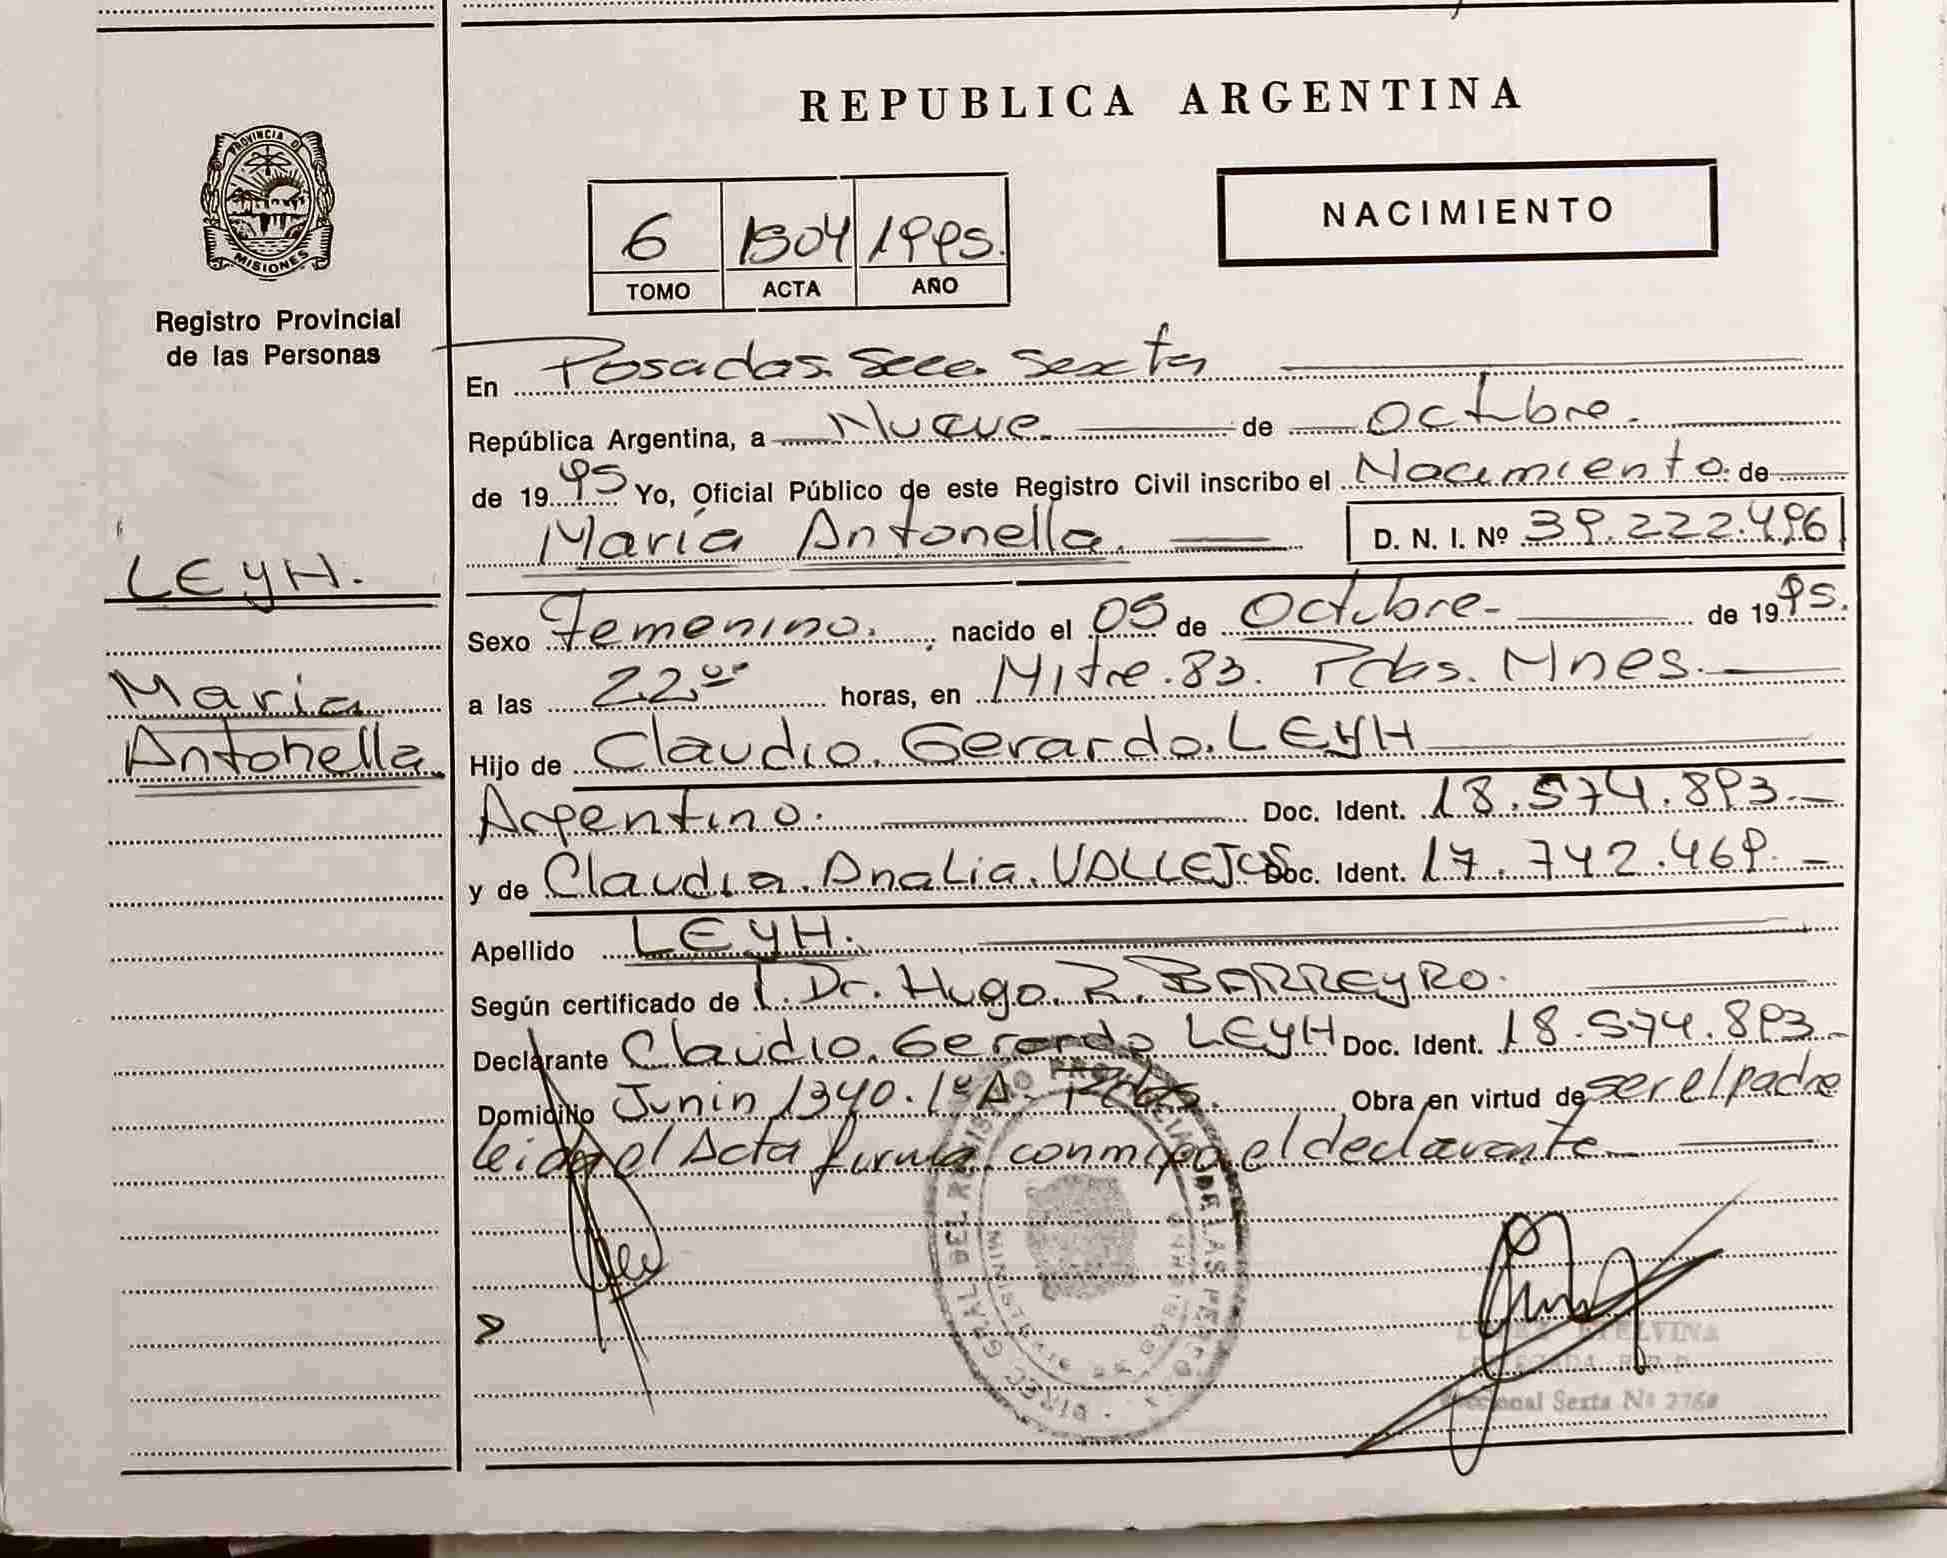 REPUBLICA ARGENTINA
PROVINCIA DE
MISIONES
Registro Provincial
de las Personas
NACIMIENTO
6 1504 1995.
TOMO ACTA AÑO
En Posadas. Secc. Sexta
República Argentina, a Nueve. de Octubre.
de 1995 Yo, Oficial Público de este Registro Civil inscribo el Nacimiento. de
María Antonella. D. N. I. Nº 39.222.496
LEYH.
María
Antonella.
Sexo Femenino. , nacido el 05 de Octubre- de 1995.
a las 22 horas, en Mitre. 83. Pdas. Mnes.
Hijo de Claudio. Gerardo. LEYH
Argentino. Doc. Ident. 18.574.893.-
y de Claudia. Analia. VALLEJOS Doc. Ident. 17.742.469.-
Apellido LEYH.
Según certificado de Dr. Hugo. R. BARREYRO.
Declarante Claudio. Gerardo LEYH Doc. Ident. 18.574.893-
Domicilio Junin 1340. 1º A. Pdas. , Obra en virtud de ser el padre
leida el Acta firma conmigo el declarante
DIREC. GRAL. DEL REGISTRO PROVINCIAL DE LAS PERSONAS
ETELVINA
DELEGADA R.P.P.
Seccional Sexta Nº 2768